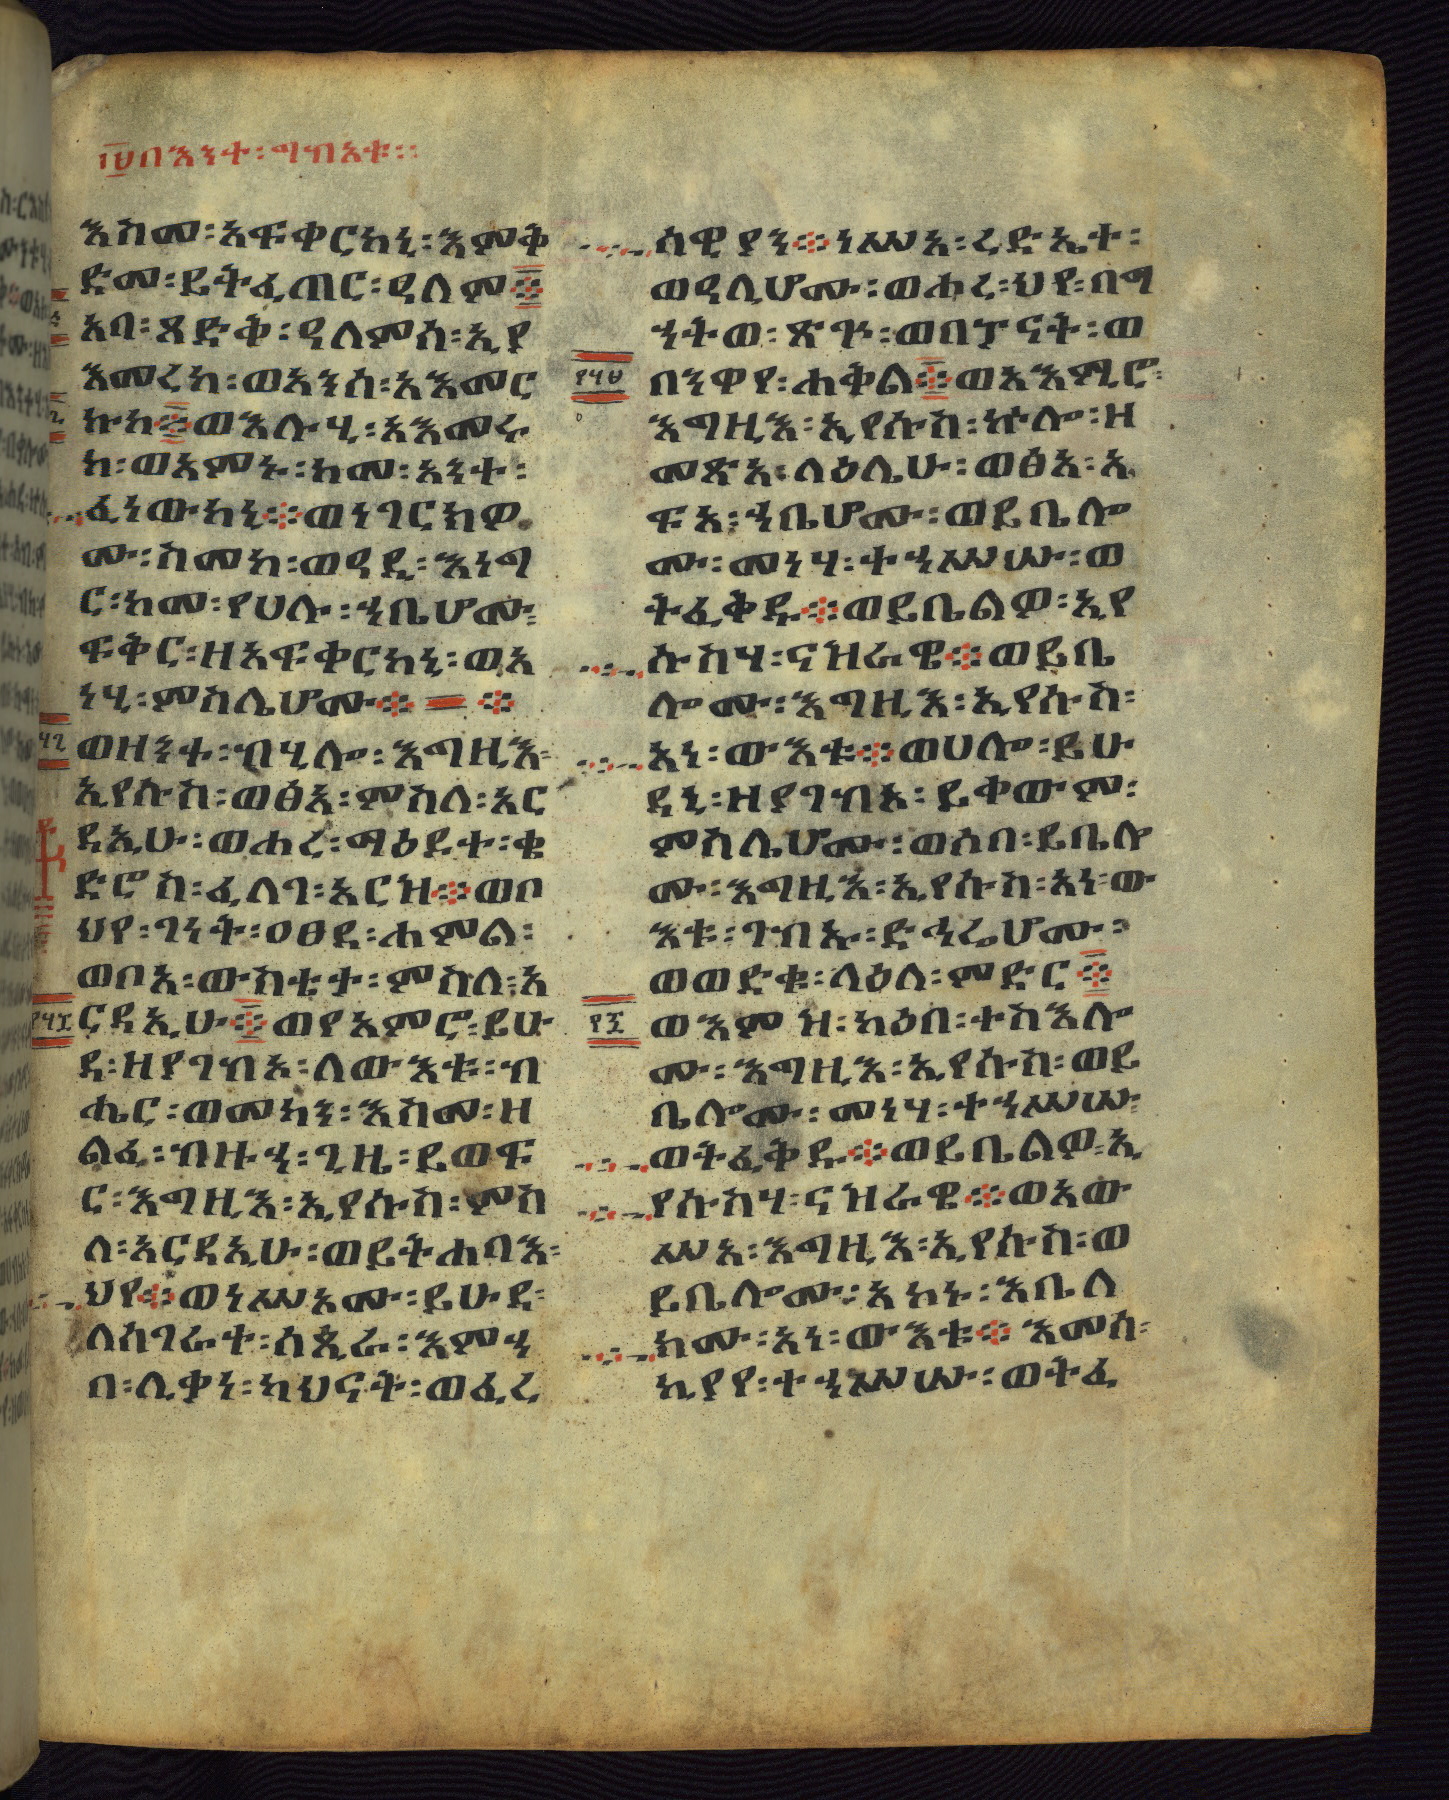 ፲፱በእንተ፡ግብአቱ።
እስመ፡አፍቀርከኒ፡እምቅ
ድመ፡ይትፈጠር፡ዓለም።
አባ፡ጻድቅ፡ዓለምሰ፡ኢያ
እመረከ፡ወአንሰ፡አእመር
ኩከ።ወእሉሂ፡አእመሩ
ከ፡ወአምኑ፡ከመ፡አንተ፡
ፈነውከኒ።ወነገርክዎ
ሙ፡ስመከ፡ወዓዲ፡እነግ
ር፡ከመ፡የሀሉ፡ኀቤሆሙ፡
ፍቅር፡ዘአፍቀርከኒ፡ወአ
ነሂ፡ምስሌሆሙ።
፵፯
ወዘንተ፡ብሂሎ፡እግዚእ፡
ኢየሱስ፡ወፅአ፡ምስለ፡አር
ዳኢሁ፡ወሐረ፡ማዕዶተ፡ቄ
ድሮስ፡ፈለገ፡አርዝ።ወቦ
ህየ፡ገነት፡ዐፀደ፡ሐምል፡
ወቦአ፡ውስቴታ፡ምስለ፡አ
ርዳኢሁ።ወያአምሮ፡ይሁ
ዳ፡ዘያገብአ፡ለውእቱ፡ብ
ሔር፡ወመካን፡እስመ፡ዘ
ልፈ፡ብዙኀ፡ጊዜ፡ይወፍ
ር፡እግዚእ፡ኢየሱስ፡ምስ
ለ፡አርዳኢሁ፡ወይትሐባእ፡
ህየ።ወነሥአሙ፡ይሁዳ፡
ለሰገራት፡ሰጲራ፡እምኀ
በ፡ሊቃነ፡ካህናት፡ወፈሪ
ሳዊያን።ነሥአ፡ረድኤተ፡
ወዓሊሆሙ፡ወሐረ፡ህየ፡በማ
ኅትወ፡ጽጕ፡ወበፓናት፡ወ
በንዋየ፡ሐቅል።ወአእሚሮ፡
እግዚእ፡ኢየሱስ፡ኵሎ፡ዘ
መጽአ፡ላዕሌሁ፡ወፅአ፡አ
ፍአ፡ኀቤሆሙ፡ወይቤሎ
ሙ፡መነሃ፡ተኀሥሡ፡ወ
ትፈቅዱ።ወይቤልዎ፡ኢየ
ሱስሃ፡ናዝራዌ።ወይቤ
ሎሙ፡እግዚእ፡ኢየሱስ፡
አነ፡ውእቱ።ወሀሎ፡ይሁ
ዳኒ፡ዘያገብአ፡ይቀውም፡
ምስሌሆሙ፡ወሶበ፡ይቤሎ
ሙ፡እግዚእ፡ኢየሱስ፡አነ፡ው
እቱ፡ገብኡ፡ድኅሬሆሙ፡
ወወድቁ፡ላዕለ፡ምድር።
ወእምዝ፡ካዕበ፡ተስእሎ
ሙ፡እግዚእ፡ኢየሱስ፡ወይ
ቤሎሙ፡መነሃ፡ተኀሥሡ፡
ወትፈቅዱ።ወይቤልዎ፡ኢ
የሱስሃ፡ናዝራዌ።ወአው
ሥአ፡እግዚእ፡ኢየሱስ፡ወ
ይቤሎሙ፡አኮኑ፡እቤለ
ክሙ፡አነ፡ውእቱ።እመሰ፡
ኪያየ፡ተኀሥሡ፡ወትፈ